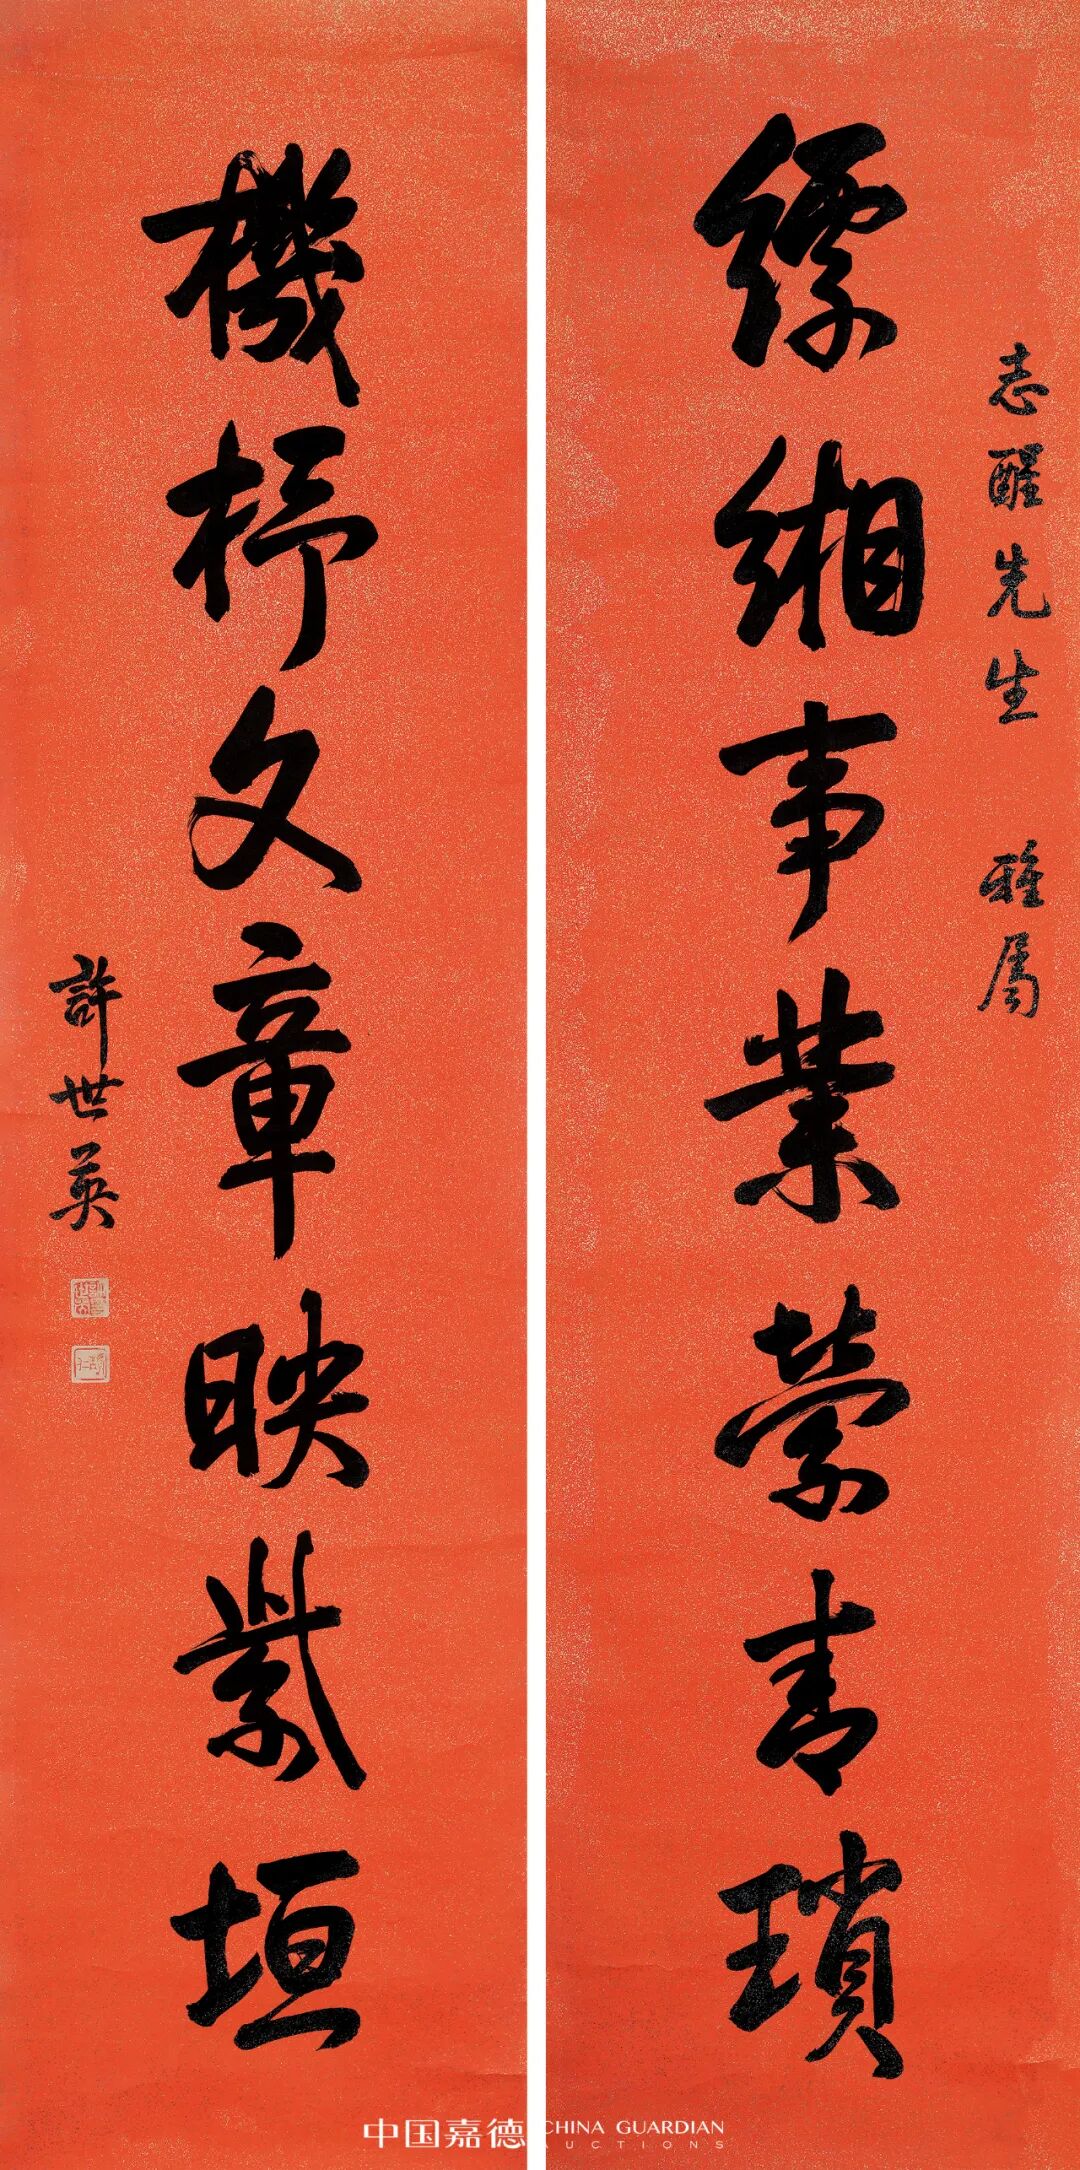 志醒先生 雅属
缥缃事業荣青瑣
機杼文章映紫垣
許世英
中国嘉德
CHINA GUARDIAN
AUCTIONS